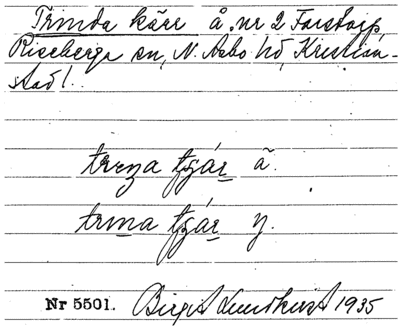 Trinda kärr å. nr 2 Forstorp,
Riseberga sn, N. Åsbo hd, Kristian-
stad l.
kärr å.
kärr y.
Nr 5501. Birgit Lundkvist 1935